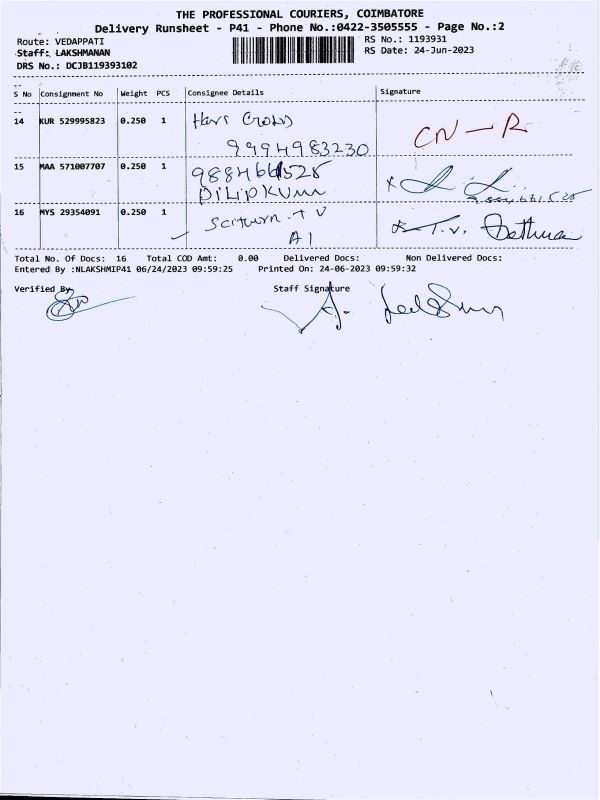 THE PROFESSIONAL COURIERS, COIMBATORE
Delivery Runsheet - P41 - Phone No.:0422-3505555 - Page No.:2
Route: VEDAPPATI
RS No.: 1193931
Staff: LAKSHMANAN
RS Date: 24-Jun-2023
DRS No.: DCJB119393102
S No Consignment No Weight PCS Consignee Details Signature
14 KUR 529995823 0.250 1
9994983230
CN-R
15 MAA 571007707 0.250 1
DILIPKUM
16 MYS 29354091 0.250 1
T.V.
Total No. Of Docs: 16 Total COD Amt: 0.00 Delivered Docs: Non Delivered Docs:
Entered By :NLAKSHMIP41 06/24/2023 09:59:25 Printed On: 24-06-2023 09:59:32
Verified By
Staff Signature